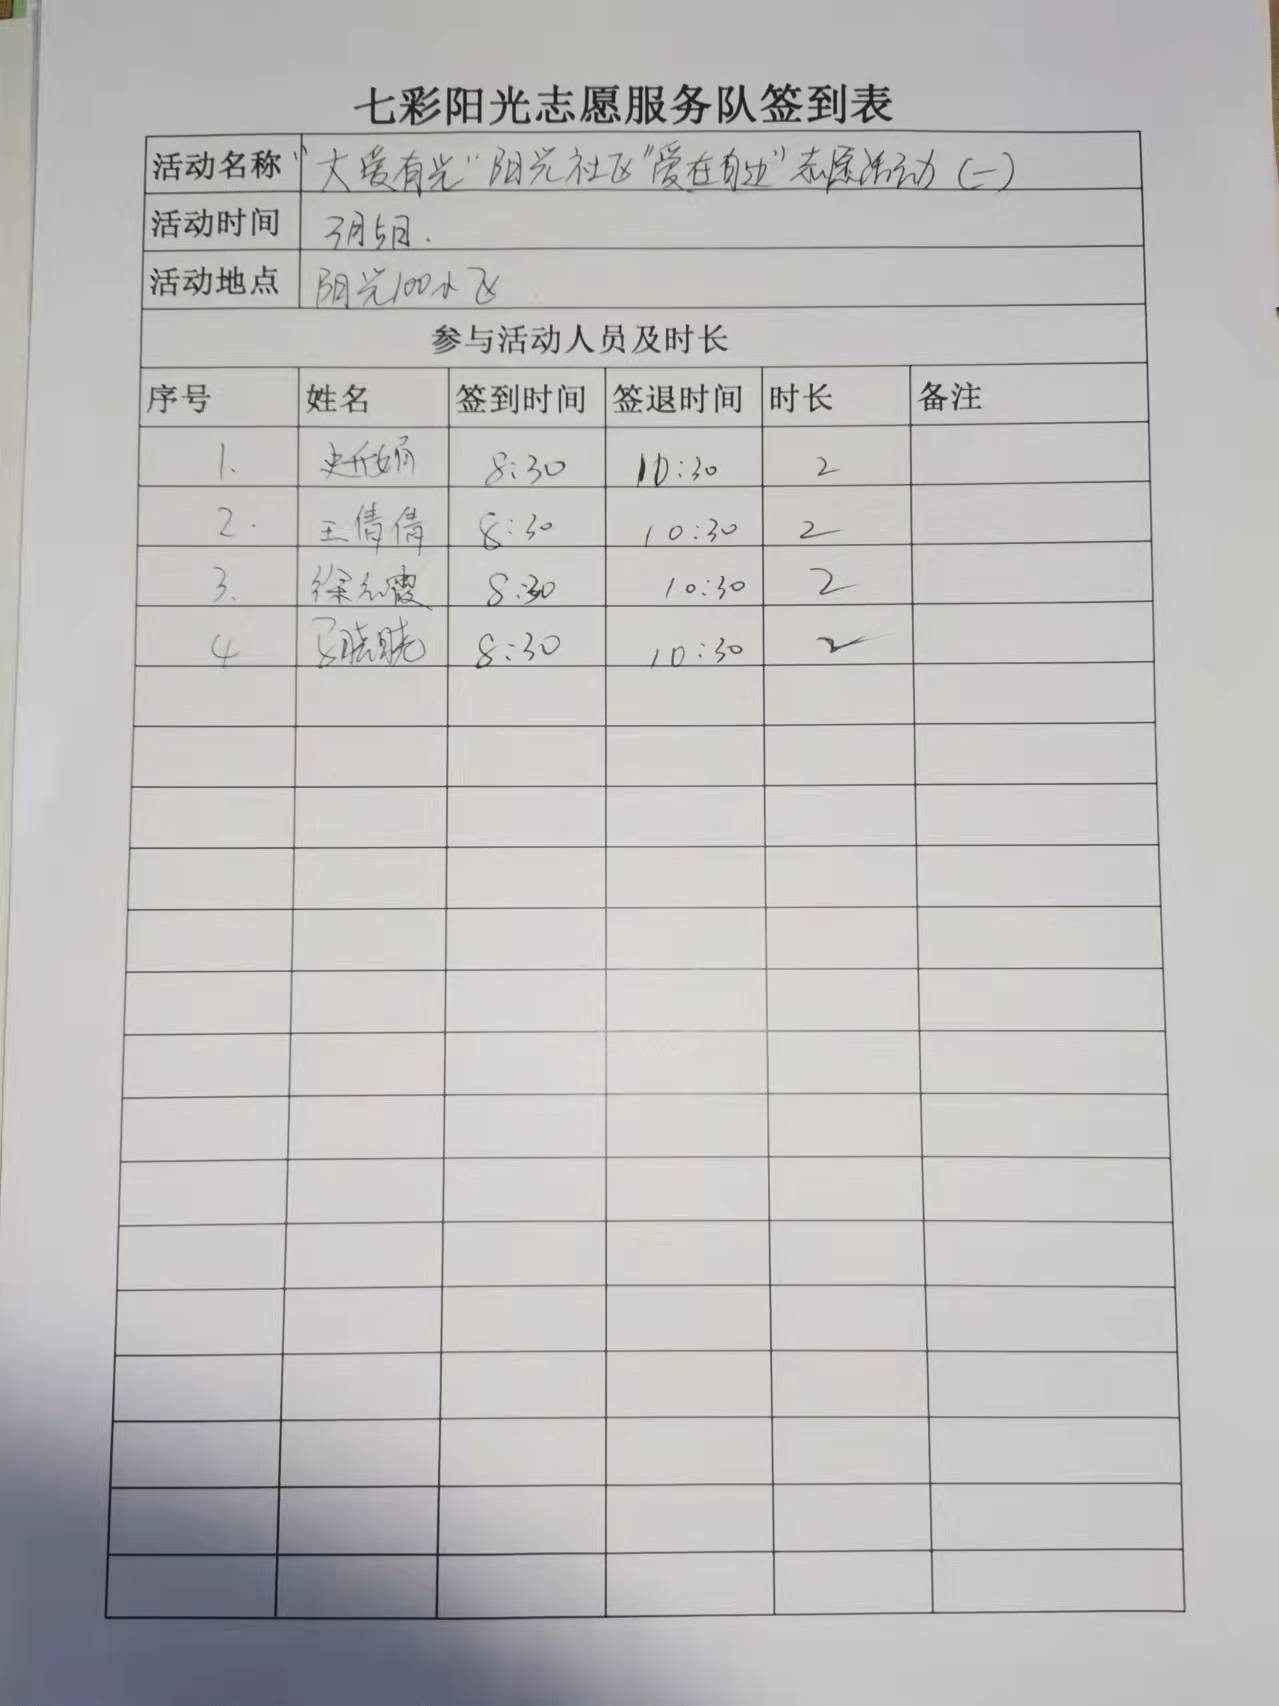 七彩阳光志愿服务队签到表
活动名称 "大爱有光"阳光社区"爱在身边"志愿活动(一)
活动时间 3月5日.
活动地点 阳光100小区
参与活动人员及时长
序号 姓名 签到时间 签退时间 时长 备注
1. 8:30 10:30 2
2. 王倩倩 8:30 10:30 2
3. 8:30 10:30 2
4 8:30 10:30 2